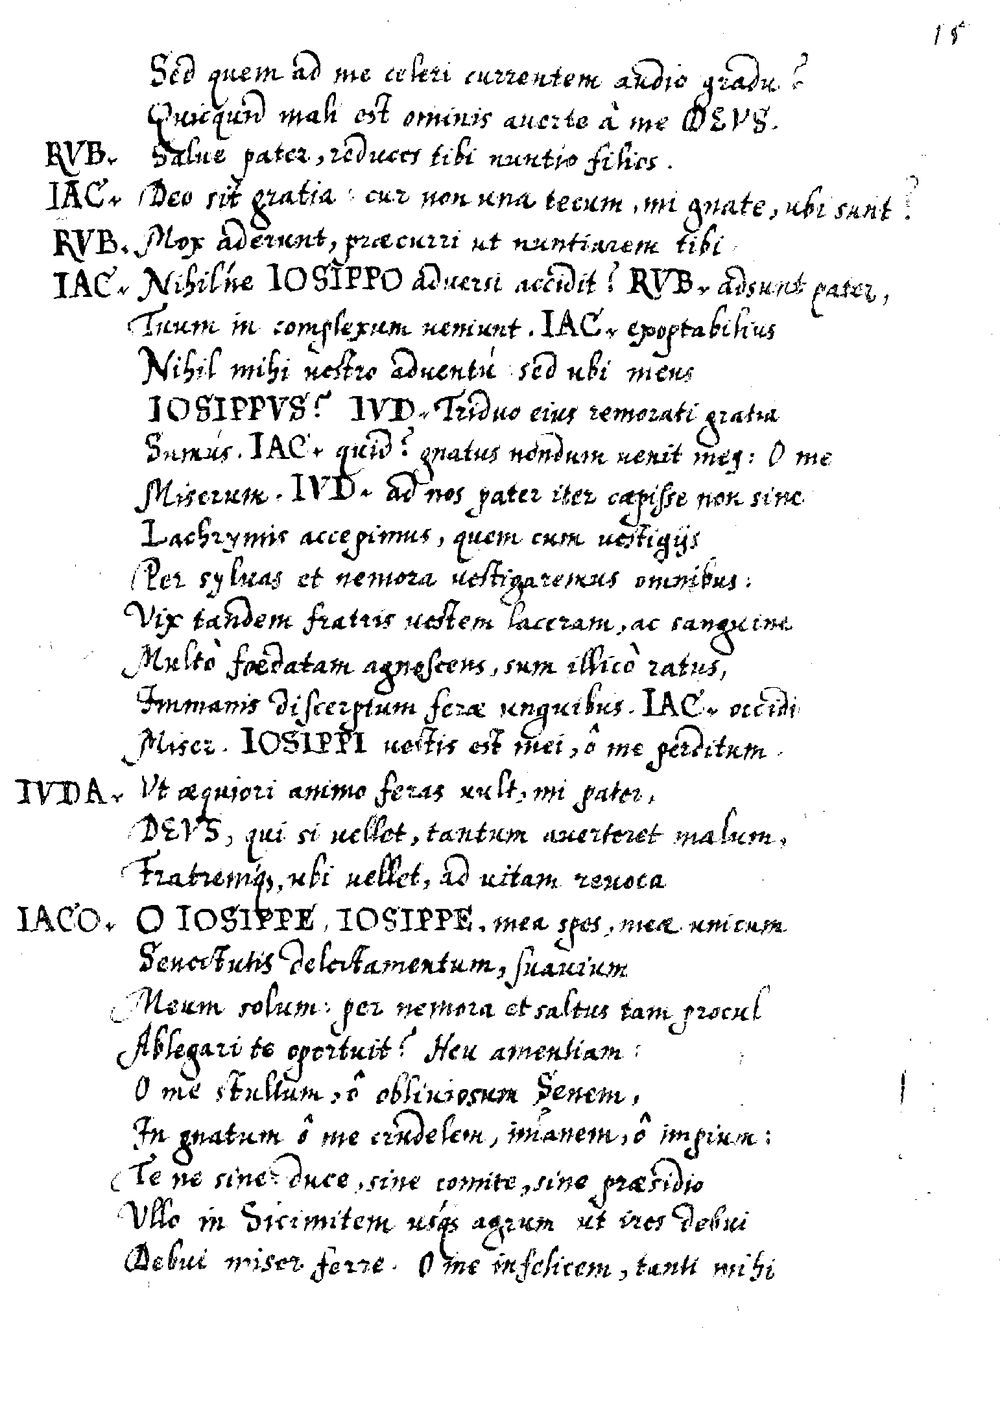 15
Sed quem ad me celeri currentem audio gradu?
Quicquid mali est ominis auerte à me DEVS.
RVB. Salue pater, reduces tibi nuntio filios.
IAC. Deo sit gratia: cur non una tecum, mi gnate, ubi sunt?
RVB. Mox aderunt, præcurri ut nuntiarem tibi.
IAC. Nihil'ne IOSIPPO aduersi accidit? RVB. adsunt pater,
Tuum in complexum ueniunt. IAC. exoptabilius
Nihil mihi uestro aduentu: sed ubi meus
IOSIPPVS? IVD. Triduo eius remorati gratia
Sumus. IAC. quid? gnatus nondum uenit meus: O me
Miserum. IVD. ad nos pater iter cæpisse non sine
Lachrymis accepimus, quem cum uestigijs
Per syluas et nemora uestigaremus omnibus:
Vix tandem fratris uestem laceram, ac sanguine
Multò fœdatam agnoscens, sum illicò ratus,
Immanis discerptum feræ unguibus. IAC. occidi
Miser. IOSIPPI uestis est mei, ô me perditum.
IVDA. Vt æquiori animo feras uult, mi pater,
DEVS, qui si uellet, tantum auerteret malum,
Fratremq, ubi uellet, ad uitam reuoca
IACO. O IOSIPPE, IOSIPPE, mea spes, meæ unicum
Senectutis delectamentum, suauium
Meum solum: per nemora et saltus tam procul
Ablegari te oportuit? Heu amentiam:
O me stultum, ô obliuiosum Senem,
In gnatum ô me crudelem, imanem, ô impium:
Te ne sine duce, sine comite, sine præsidio
Vllo in Sicimitem usq agrum ut ires debui
Debui miser ferre. O me infelicem, tanti mihi